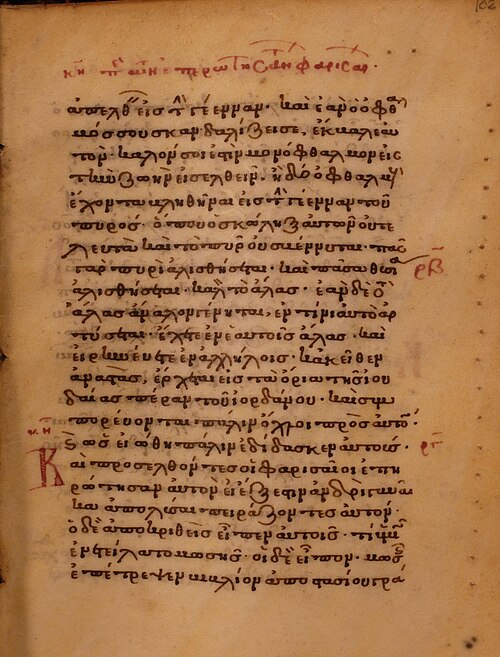 κη π ἐπερωτησάν φαρισαί
ἀπελθεῖν εἰς τὴν γέενναν. καὶ ἐὰν ὁ ὀφθαλ
μός σου σκανδαλίζει σε, ἔκβαλε αὐ
τόν. καλόν σοι ἐστὶν μονόφθαλμον εἰς
τὴν ζωὴν εἰσελθεῖν, ἢ δύο ὀφθαλμοὺς
ἔχοντα βληθῆναι εἰς τὴν γέενναν τοῦ
πυρός. ὅπου ὁ σκώληξ αὐτῶν οὐ τε
λευτᾶ καὶ τὸ πῦρ οὐ σβέννυται. πᾶς
γὰρ πυρὶ ἁλισθήσεται. καὶ πᾶσα θυσία
ρβ
ἁλισθήσεται. καλὸν τὸ ἅλας. ἐὰν δὲ τὸ
ἅλας ἄναλον γένηται, ἐν τίνι αὐτὸ ἀρ
τύσεται. ἔχετε ἐν ἑαυτοῖς ἅλας. καὶ
εἰρηνεύετε ἐν ἀλλήλοις. κἀκεῖθεν
ἀναστὰς, ἔρχεται εἰς τὰ ὅρια τῆς ἰου
δαίας πέραν τοῦ ἰορδάνου. καὶ συμ
πορεύονται πάλιν ὄχλοι πρὸς αὐτόν.
κη ὡς εἰώθει πάλιν ἐδίδασκεν αὐτούς.
Καὶ προσελθόντες οἱ φαρισαῖοι ἐπη
ρώτησαν αὐτὸν εἰ ἔξεστιν ἀνδρὶ γυναῖ
κα ἀπολῦσαι πειράζοντες αὐτόν.
ὁ δὲ ἀποκριθεὶς εἶπεν αὐτοῖς. τί ὑμῖν
ἐνετείλατο μωσῆς. οἱ δὲ εἶπον. μωσῆς
ἐπέτρεψεν βιβλίον ἀποστασίου γρά